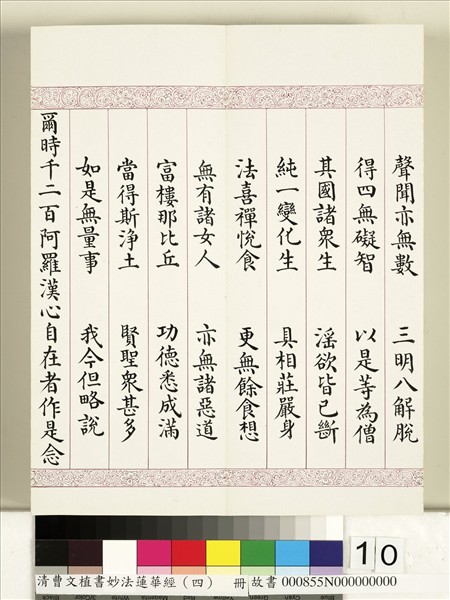 聲聞亦無數 三明八解脫
得四無礙智 以是等為僧
其國諸眾生 淫欲皆已斷
純一變化生 具相莊嚴身
法喜禪悅食 更無餘食想
無有諸女人 亦無諸惡道
富樓那比丘 功德悉成滿
當得斯淨土 賢聖眾甚多
如是無量事 我今但略說
爾時千二百阿羅漢心自在者作是念
10
清曹文植書妙法蓮華經（四） 冊 故書 000855N000000000